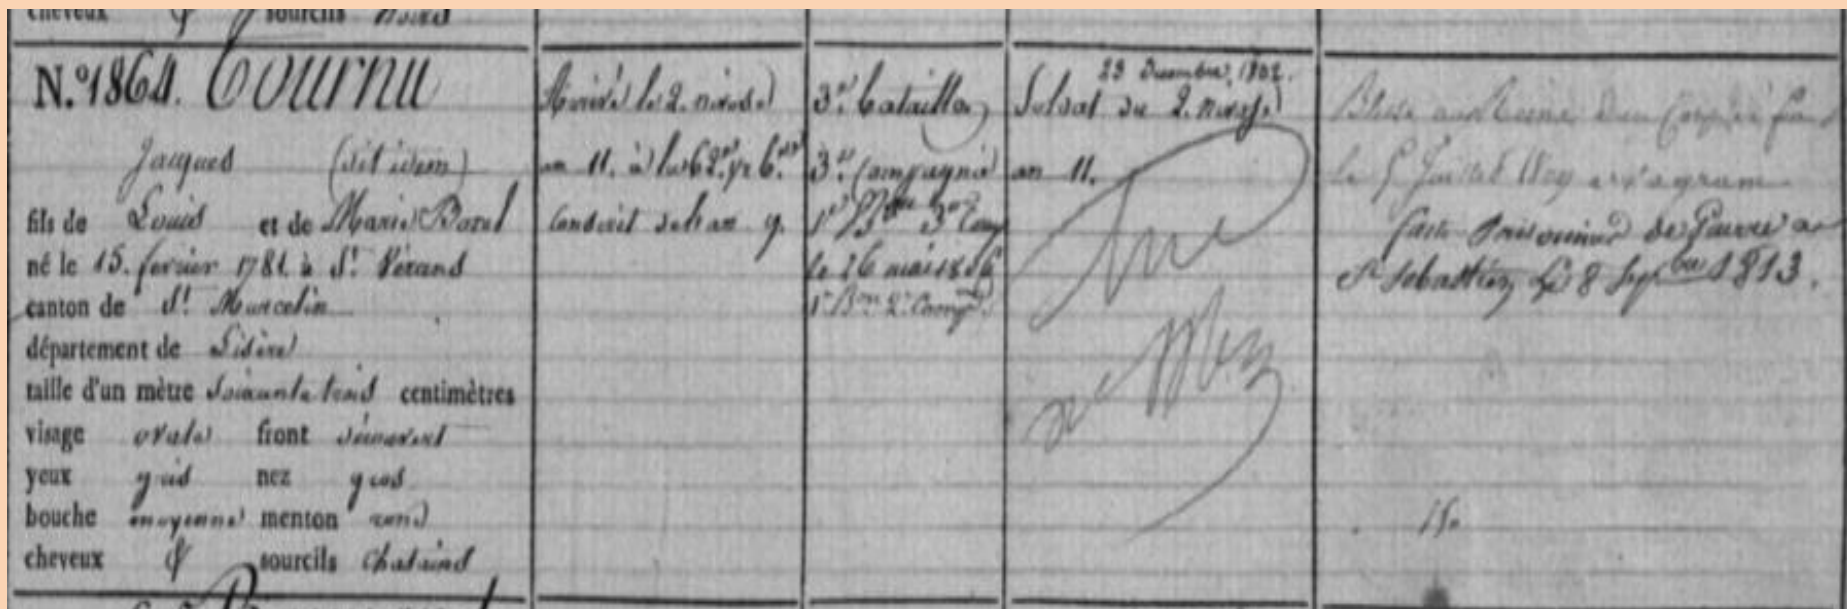 cheveux & sourcils noirs
N.º 1864. Tournu
Jacques (dit idem)
fils de Louis et de Marie Borel
né le 15. fevrier 1781 à St. Vérand
canton de St. Marcelin
département de Lisère
taille d'un mètre soixante trois centimètres
visage ovale front découvert
yeux gris nez gros
bouche moyenne menton rond
cheveux & sourcils chatains
Arrivé le 2. nivose
an 11. à la 62.e
Conscrit de l'an 9.
3.e bataillon
3.e Compagnie
1er Bon 3e Comp
le 26 mai 1806
1r Bon 2e Comp
23 Decembre 1802.
Soldat du 2. nivose
an 11.
Blessé d'un Coup de feu
le 5 Juillet 1809 a Wagram
fait Prisonnier de Guerre a
St Sebastien le 8 Sepbre 1813.